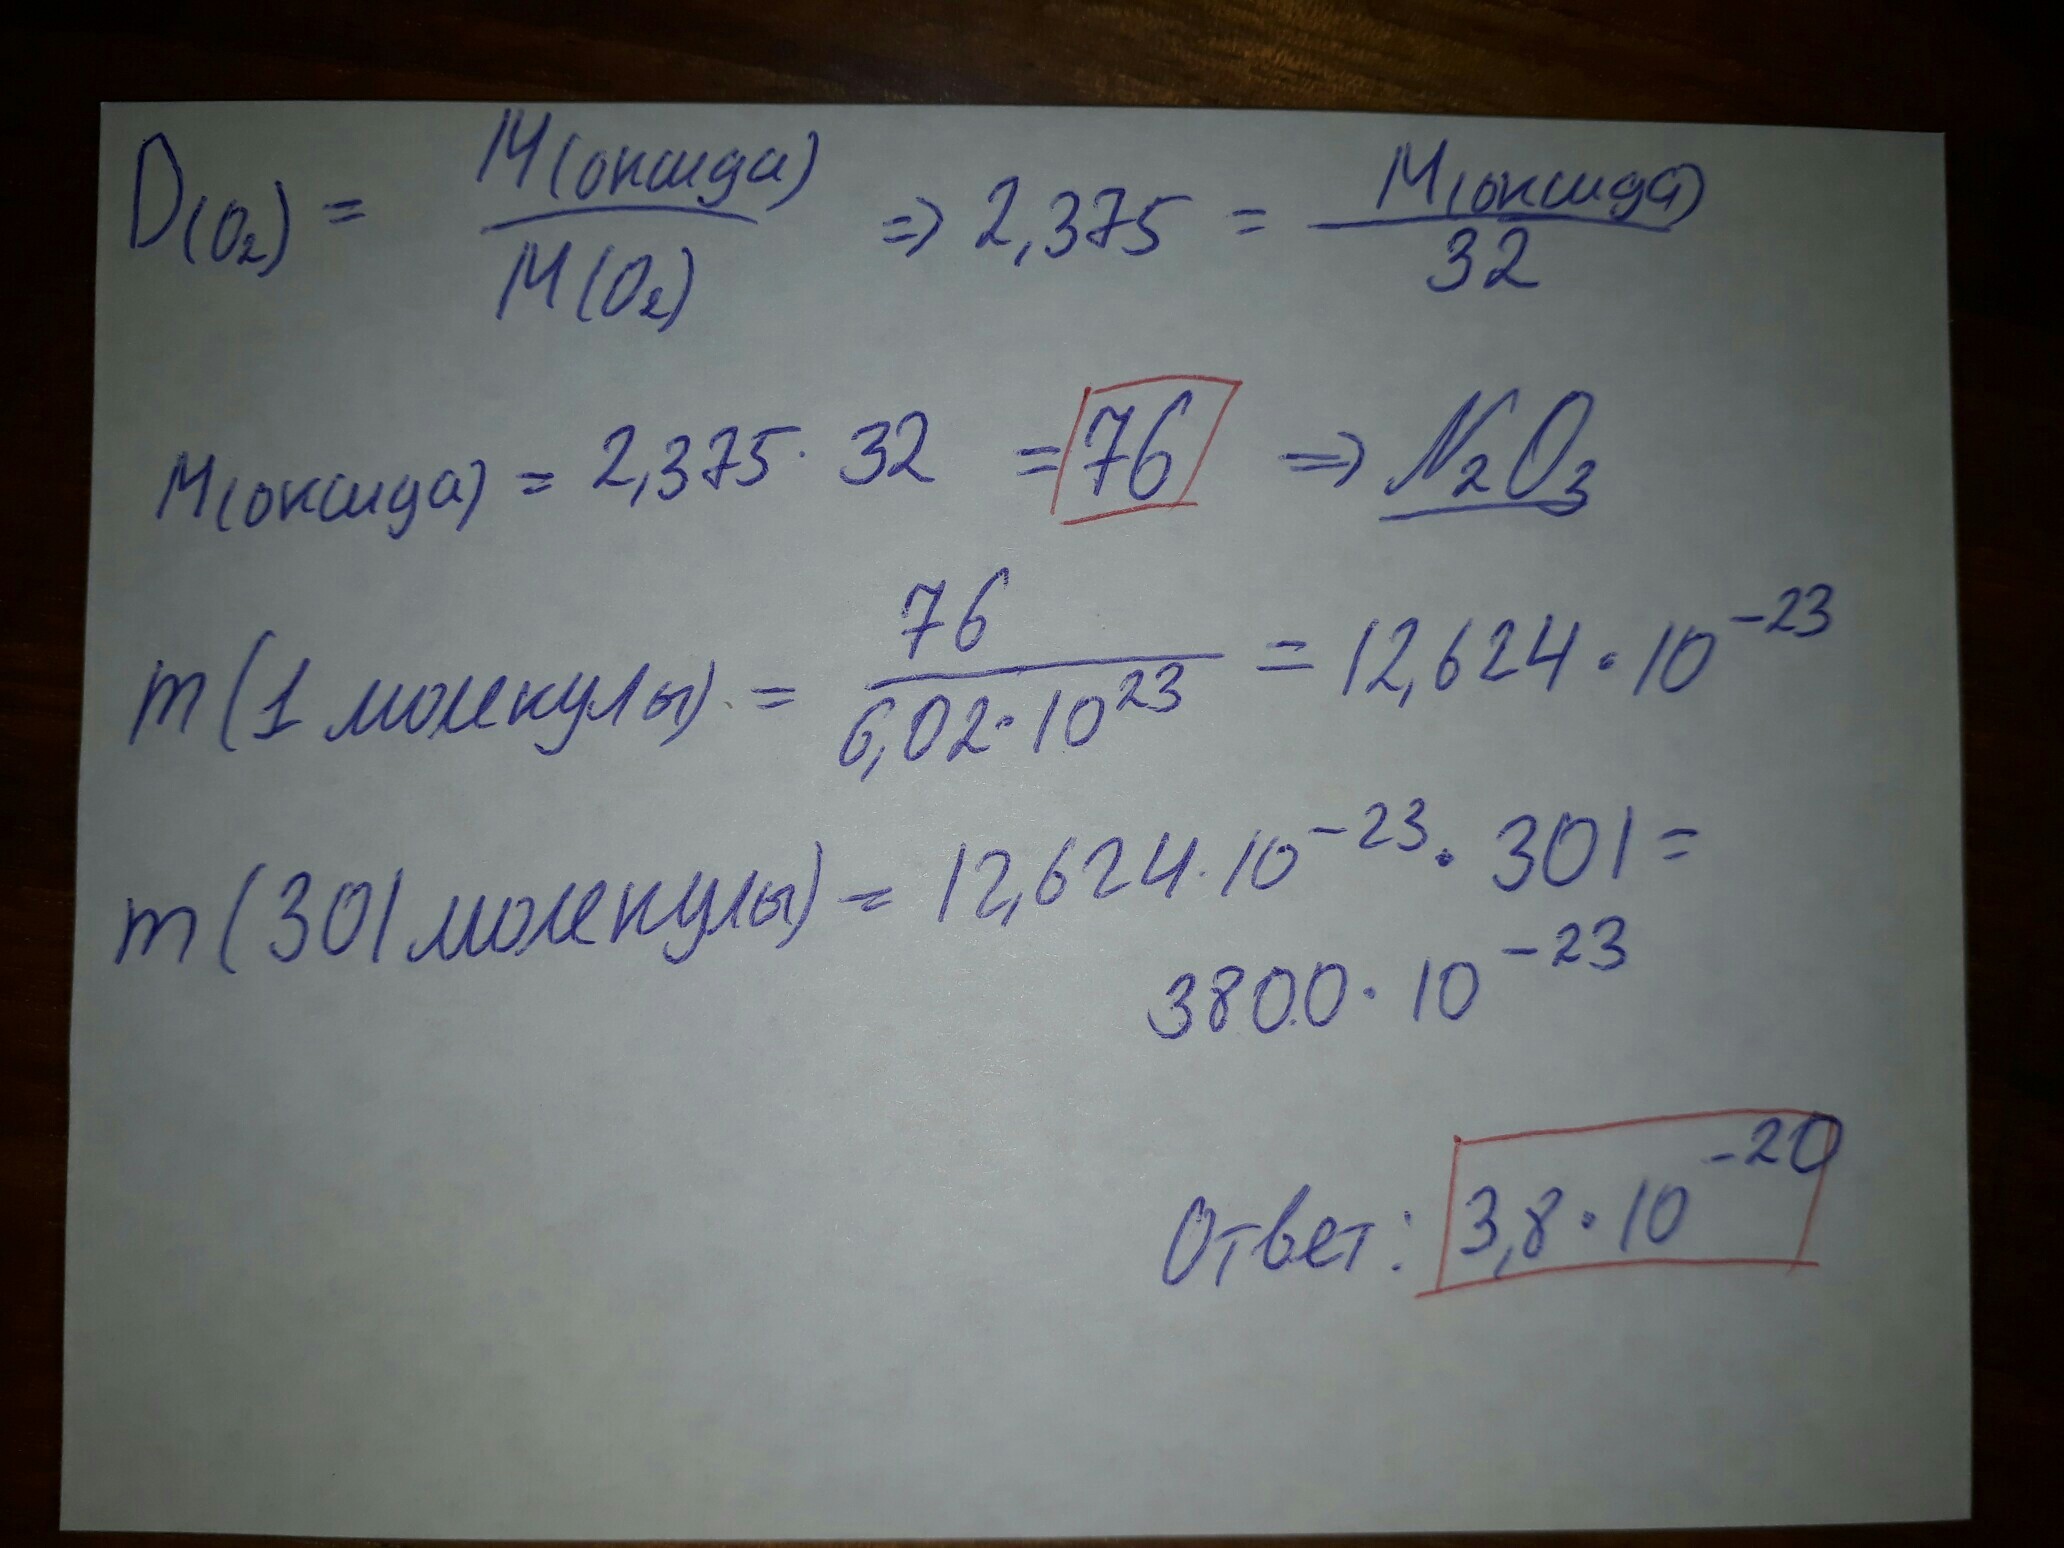 D(O₂) = M(оксида) / M(O₂) => 2,375 = M(оксида) / 32
M(оксида) = 2,375 · 32 = 76 => N₂O₃
m(1 молекулы) = 76 / 6,02·10²³ = 12,624·10⁻²³
m(301 молекулы) = 12,624·10⁻²³ · 301 =
3800·10⁻²³
Ответ: 3,8·10⁻²⁰